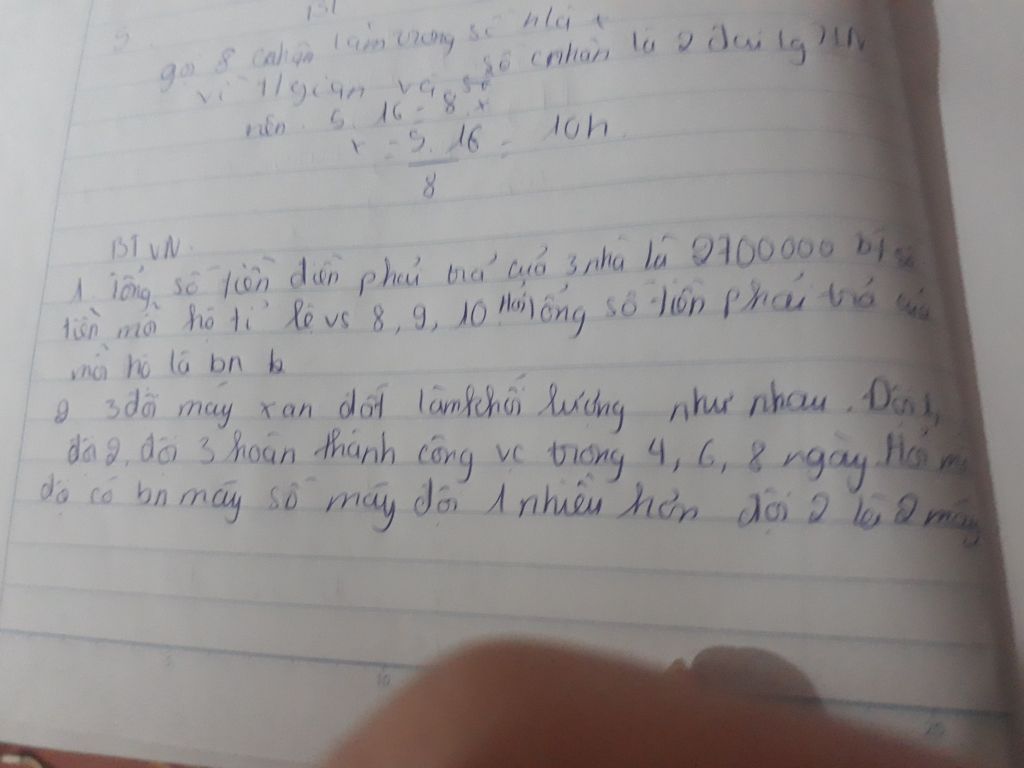 BT
5.
gọi 8 cnhân làm trong số h là x
vì t/gian và số cnhân là 2 đại lg TLN
nên 5. 16 = 8. x
x = 5. 16 = 10h.
8
BTVN.
1. Tổng số tiền điện phải trả của 3 nhà là 2700000 bt số
tiền mỗi hộ tỉ lệ vs 8, 9, 10 Hỏi tổng số tiền phải trả của
mỗi hộ là bn
2 3 đội máy xan đất làm khối lượng như nhau. Đội 1,
đội 2, đội 3 hoàn thành công vc trong 4, 6, 8 ngày Hỏi mỗi
độ có bn máy số máy đội 1 nhiều hơn đội 2 là 2 máy